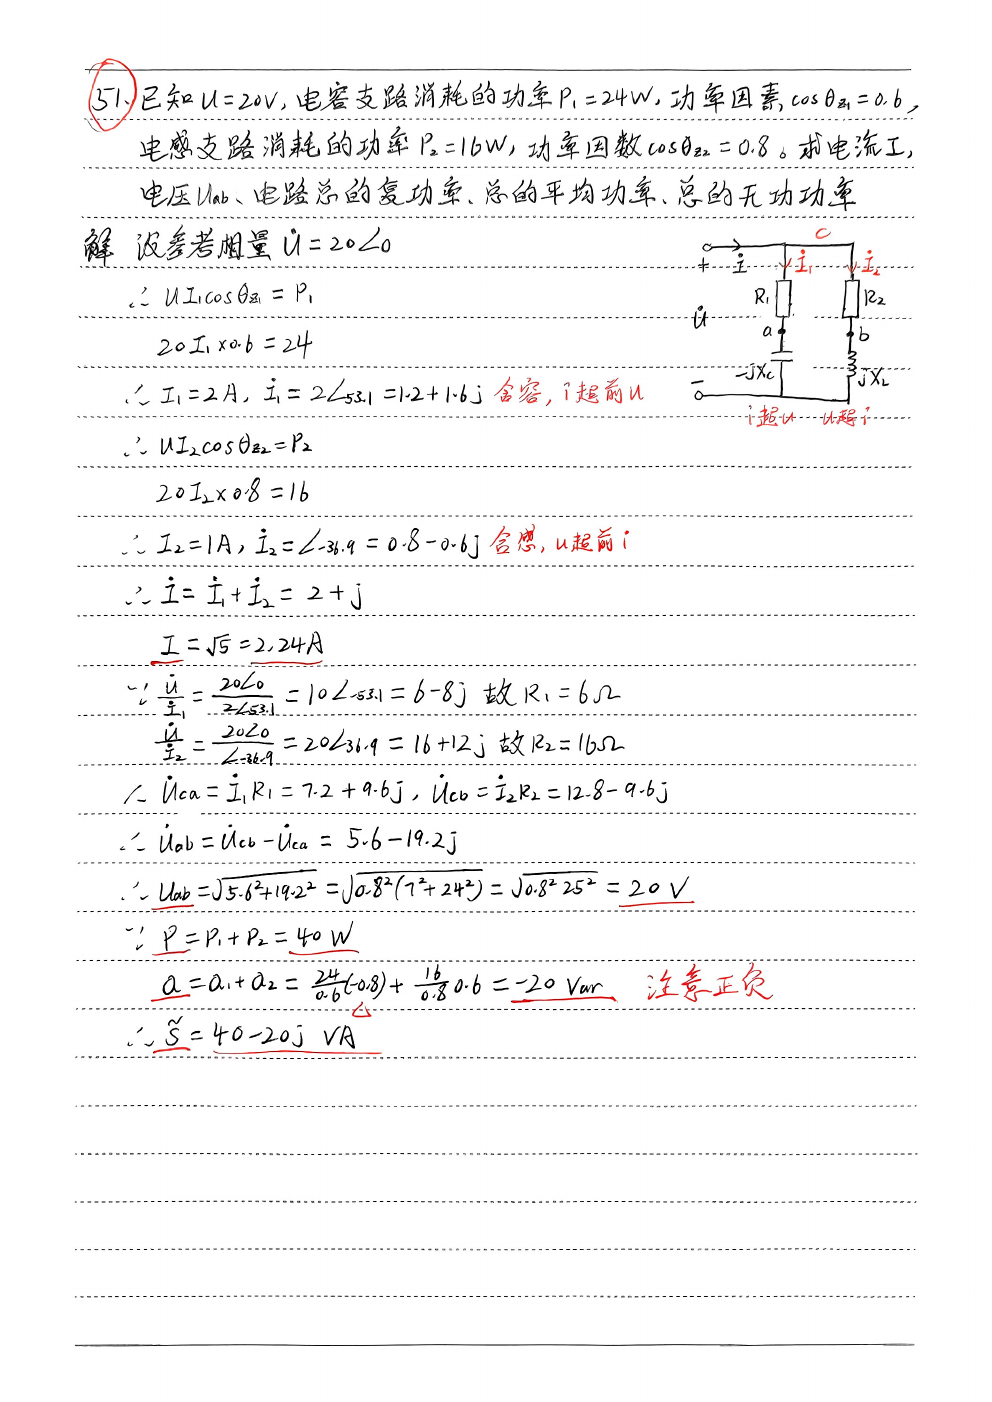 51、已知U=20V，电容支路消耗的功率P₁=24W，功率因素cosθz₁=0.6，
电感支路消耗的功率P₂=16W，功率因数cosθz₂=0.8。求电流I，
电压Uab、电路总的复功率、总的平均功率、总的无功功率
解 设参考相量U̇=20∠0
∴ UI₁cosθz₁=P₁
20I₁×0.6=24
∴ I₁=2A，İ₁=2∠53.1=1.2+1.6j 含容，i超前u
∴ UI₂cosθz₂=P₂
20I₂×0.8=16
∴ I₂=1A，İ₂=∠-36.9=0.8-0.6j 含感，u超前i
∴ İ=İ₁+İ₂=2+j
I=√5=2.24A
∵ U̇/İ₁=20∠0/2∠53.1=10∠-53.1=6-8j 故R₁=6Ω
U̇/İ₂=20∠0/∠-36.9=20∠36.9=16+12j 故R₂=16Ω
∴ U̇ca=İ₁R₁=7.2+9.6j，U̇cb=İ₂R₂=12.8-9.6j
∴ U̇ab=U̇cb-U̇ca=5.6-19.2j
∴ Uab=√(5.6²+19.2²)=√(0.8²(7²+24²))=√(0.8²25²)=20V
∵ P=P₁+P₂=40W
Q=Q₁+Q₂=24/0.6(-0.8)+16/0.8 0.6=-20Var 注意正负
∴ S̃=40-20j VA
c
+ İ İ₁ İ₂
R₁ R₂
U̇
a b
-jXc jXL
-
i超u u超i